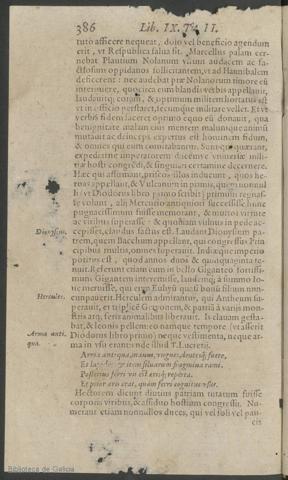 386 Lib. IX. Tit. II.
tuto afficere nequeat, dolo vel beneficio agendum
erit, vt Respublica salua sit. Marcellus palam cer-
nebat Plautium Nolanum virum audacem ac fa-
ctiosum oppidanos sollicitantem, vt ad Hannibalem
deficerent: nec audebat præ Nolanorum timore eũ
interimere, quocirca eum blandis verbis appellauit,
laudauitq; coram, & optimum militem hortatus est
vt in officio perstaret, secumque militare vellet. Et vt
verbis fidem faceret optimo equo eũ donauit, qua
benignitate anceps eius mentem malumque animũ
mutauit ac deinceps expertus est hominem fidum,
& omnes qui eum comitabantur. Sunt qui quærant,
expediatne imperatorem
ria hosti congredi, & singulari certamine decernere.
Hæc qui affirmant, priscos illos inducunt, quos he-
roas appellant, & Vulcanum in primis, quem nonnul
li (vt Diodorus libro primo scribit) primum regnas-
se volunt, alij Mercurio antiquiori successisse hunc
pugnacissimum fuisse memorant, & multos virtute
ac viribus superasse: & quoniam vulnus in pede ac-
cepisset, claudus factus est. Laudant Dionysium pa-
Dionysius. trem, quem Bacchum appellant, qui congressus Prin
cipibus multis, omnes superauit. Indiaque imperio
potitus est, quod annos duos & quinquaginta te-
nuit. Referunt etiam eum in bello Giganteo fortissi-
mum Gigantem interemisse, laudemq; à summo Io-
ue meruisse, qui eum Euhyũ quasi bonũ filium num-
Hercules. cunpauerit. Herculem admirantur, qui Antheum su-
perauit, & triplicē Geryonem, & patriā à varijs mon-
stris atq; feris animalibus liberauit. Is clauam gesta-
bat, & leonis pellem: eo namque tempore (vt asserit
Arma anti- Diodorus libro primo) neque vestimenta, neque ar-
qua. ma in vsu erant: vnde illud T. Lucretij.
Arma antiqua, manus, vngues, dentesq; fuere,
Et lapides, & item siluarum fragmina rami.
Posterius ferri vis est ærisq; reperta.
Et prior æris erat, quàm ferri cognitus vsus.
Hectorem dicunt diutius patriam tutatum fuisse
corporis viribus, & assiduo hostium congressu. Nu-
merant etiam nonnullos duces, qui vel soli vel pau
cis
Biblioteca de Galicia